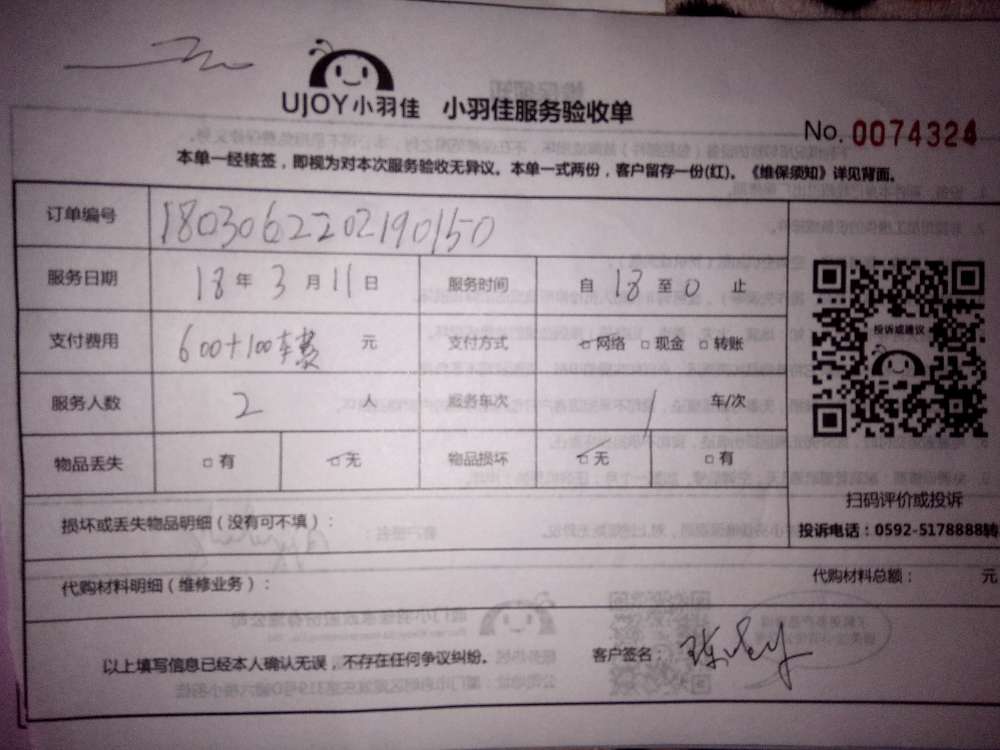 UJOY小羽佳 小羽佳服务验收单
No. 0074324
本单一经核签，即视为对本次服务验收无异议。本单一式两份，客户留存一份(红)。《维保须知》详见背面。
订单编号 1803062202190150
服务日期 18年3月11日 服务时间 自18至0止
支付费用 600+100车费 元 支付方式 网络 现金 转账
投诉或建议
服务人数 2 人 服务车次 1 车/次
物品丢失 有 无 物品损坏 无 有
扫码评价或投诉
损坏或丢失物品明细（没有可不填）：
投诉电话：0592-5178888转
代购材料明细（维修业务）： 代购材料总额： 元
以上填写信息已经本人确认无误，不存在任何争议纠纷。 客户签名：